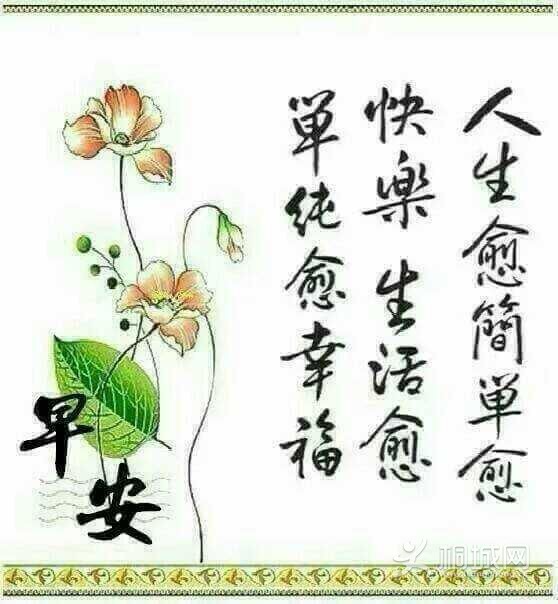 人生愈簡单愈
快樂 生活愈
单纯愈幸福
早安
桐城网